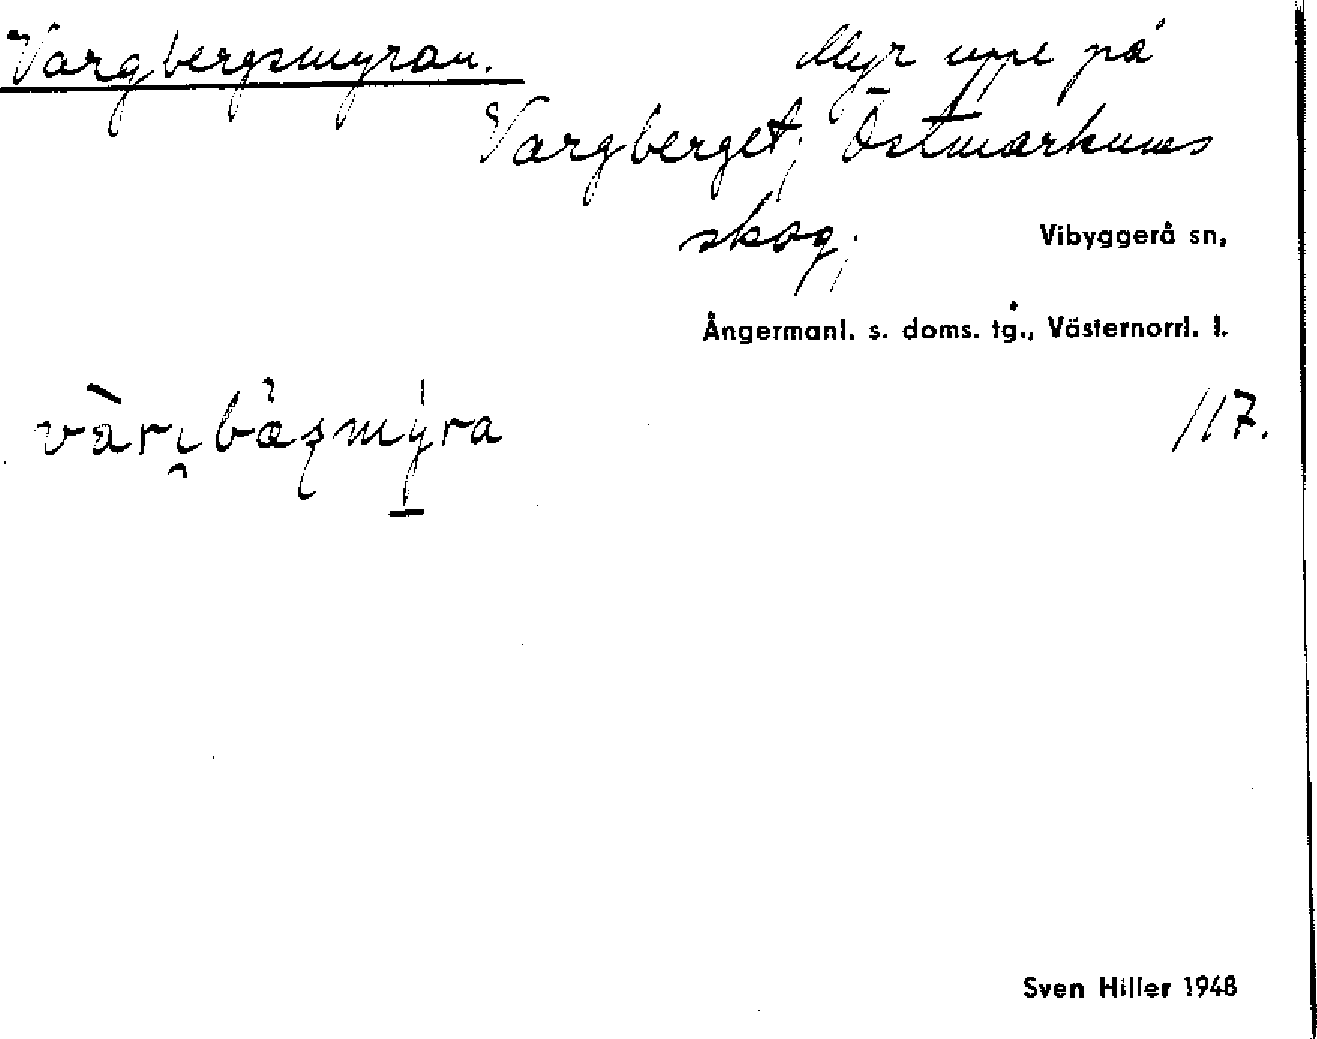 Vargbergsmyran. Myr uppe på
Vargberget, Östmarkums
skog,
Vibyggerå sn,
Ångermanl. s. doms. tg., Västernorrl. l.
117.
Sven Hiller 1948